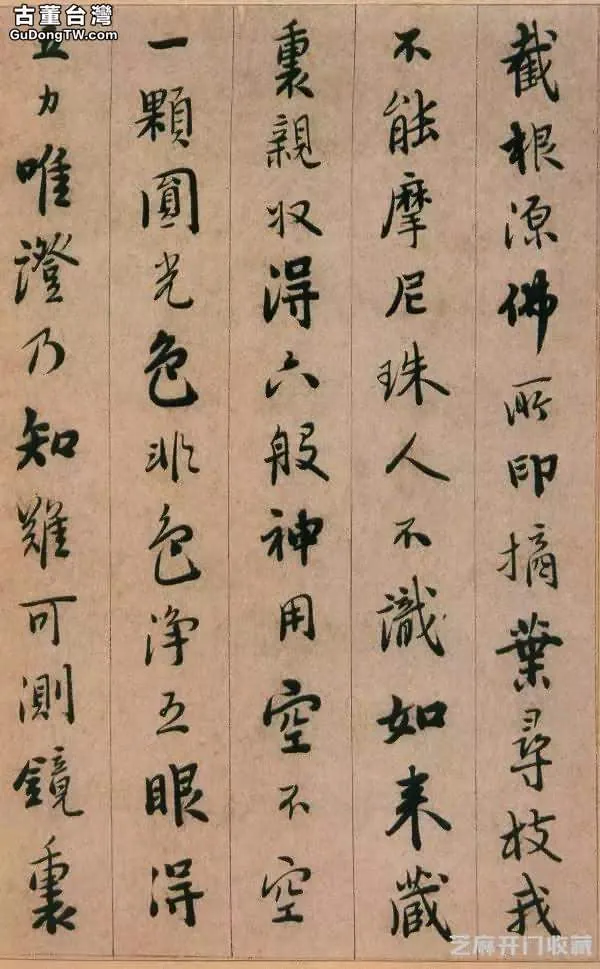 截根源佛所印摘葉尋枝我
不能摩尼珠人不識如来藏
裏親収得六般神用空不空
一顆圓光色非色净五眼得
五力唯證乃知難可測鏡裏
古董台灣
GuDongTW.com
芝麻开门收藏